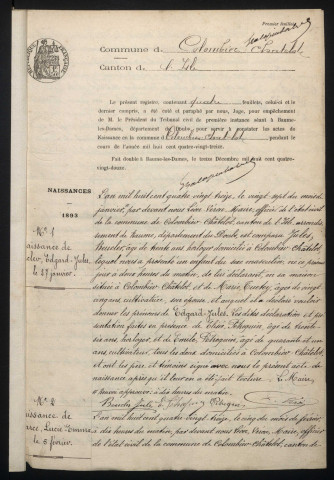 Premier feuillet
Commune de Colombier Châtelot
Canton de l'Isle
Le présent registre, contenant quatre feuillets, celui-ci et le
dernier compris, a été coté et paraphé par nous, Juge, pour empêchement
de M. le Président du Tribunal civil de première instance séant à Baume-
les-Dames, département du Doubs, pour servir à constater les actes de
Naissance en la commune de Colombier Châtelot, pendant le
cours de l'année mil huit cent quatre-vingt-treize.
Fait double à Baume-les-Dames, le treize Décembre mil huit cent quatre-
vingt-douze.
NAISSANCES
1893
N° 1
Naissance de
Edgard Jules
le 27 janvier.
L'an mil huit cent quatre vingt treize, le vingt sept du mois de
janvier, par devant nous Maire, officier de l'état civil
de la commune de Colombier-Châtelot, canton de l'Isle, arrondis-
sement de Baume, département du Doubs, est comparu Jules
âgé de trente ans horloger domicilié à Colombier-Châtelot,
lequel nous a présenté un enfant du sexe masculin, né ce jour
à deux heures du matin, de lui déclarant, en sa maison
située à Colombier-Châtelot, et de Marie âgée de vingt
cinq ans, cultivatrice son épouse et auquel il a déclaré vouloir
donner les prénoms de Edgard-Jules. Les dites déclaration et pré-
sentation faites en présence de âgé de trente
ans horloger, et de Emile âgé de quarante et un
ans, cultivateur, tous les deux domiciliés à Colombier-Châtelot,
et ont les père et témoins signé avec nous le présent acte de
naissance après qu'il leur en a été fait lecture. Le Maire,
heures du matin.
N° 2
Naissance de
Lucie Emma
le 5 février.
L'an mil huit cent quatre vingt treize, le cinq du mois de février,
à heures du matin, par devant nous Maire, officier
de l'état civil de la commune de Colombier-Châtelot, canton de